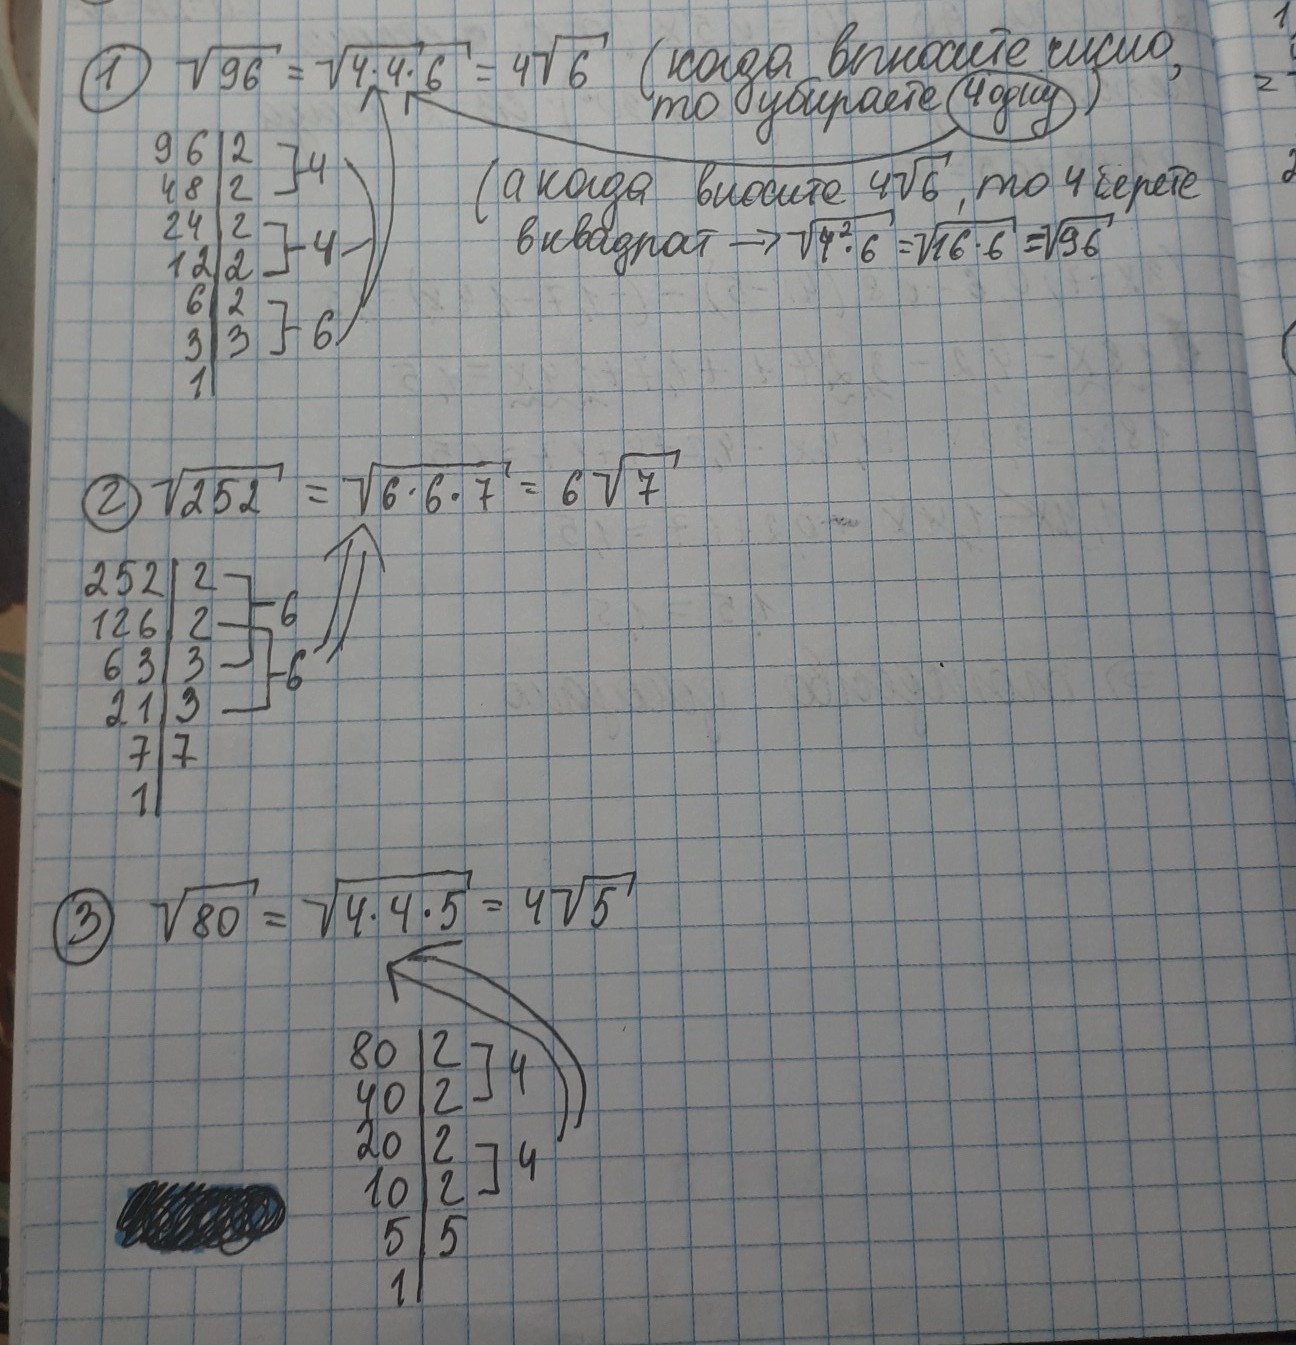 ① √96 = √4·4·6 = 4√6 (когда выносите число,
то убираете 4 одну)
96|2
48|2 4
24|2
12|2 4
6|2
3|3 6
1|
(а когда вносите 4√6, то 4 берете
в квадрат → √4²·6 = √16·6 = √96
② √252 = √6·6·7 = 6√7
252|2
126|2 6
63|3 6
21|3
7|7
1|
③ √80 = √4·4·5 = 4√5
80|2
40|2 4
20|2
10|2 4
5|5
1|